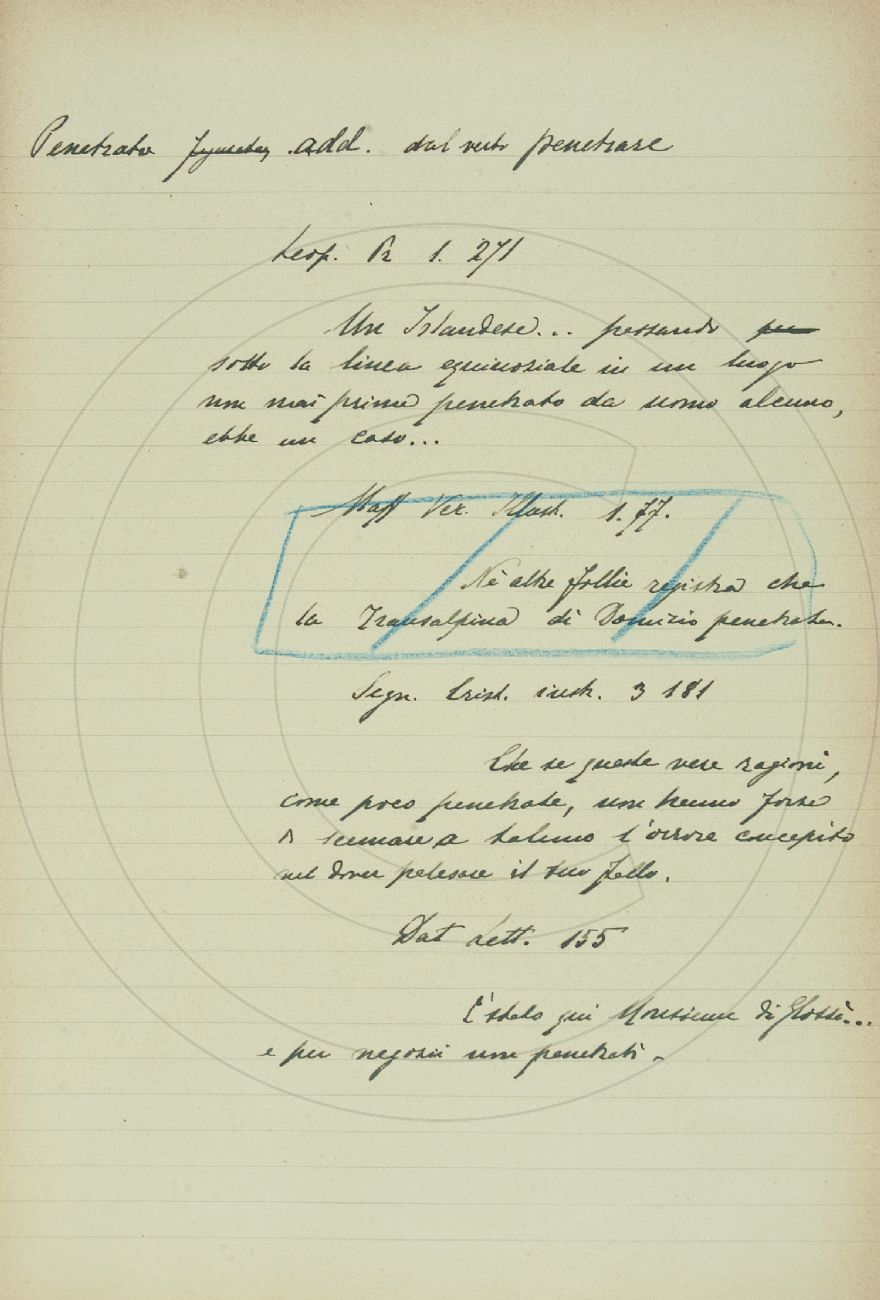 Penetrato add. dal verbo penetrare
Leop. Pr 1. 271
Un Islandese... passando
sotto la linea equinoziale in un luogo
non mai prima penetrato da uomo alcuno,
ebbe un caso...
Maff Ver. Illust. 1. 77.
Nè altre follie registra che
la Transalpina di Domizio penetrata.
Segn. Crist. instr. 3 181
Che se queste vere ragioni,
come poco penetrate, non hanno forza
a scemare a taluno l'orrore concepito
nel dover palesare il suo fallo.
Dat Lett. 155
È stato qui Monsieur di
e per negozii non penetrati.